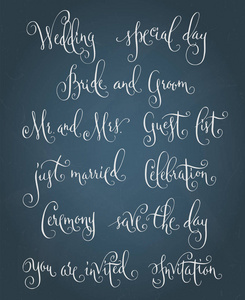 Wedding special day
Bride and Groom
Mr. and Mrs. Guest list
just married Celebration
Ceremony save the day
You are invited Invitation